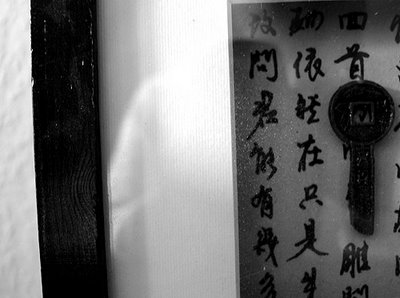 回首 雕
砌依然在只是朱
改問君能有幾多